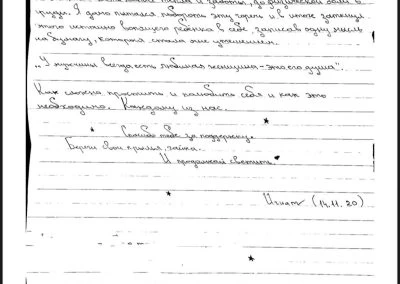 тепла и заботы, до физической боли в
груди. Я давно пытался побороть эту горечь и в итоге заткнул
этого истошно вопящего ребёнка в себе, записав одну мысль
на бумагу, которая стала мне утешением.
„У мужчины всегда есть любимая женщина - это его душа".
Как сложно простить и полюбить себя и как это
необходимо. Каждому из нас.
Спасибо тебе за поддержку.
Береги свои крылья, чайка.
И продолжай светить.
Игнат (14.11.20)